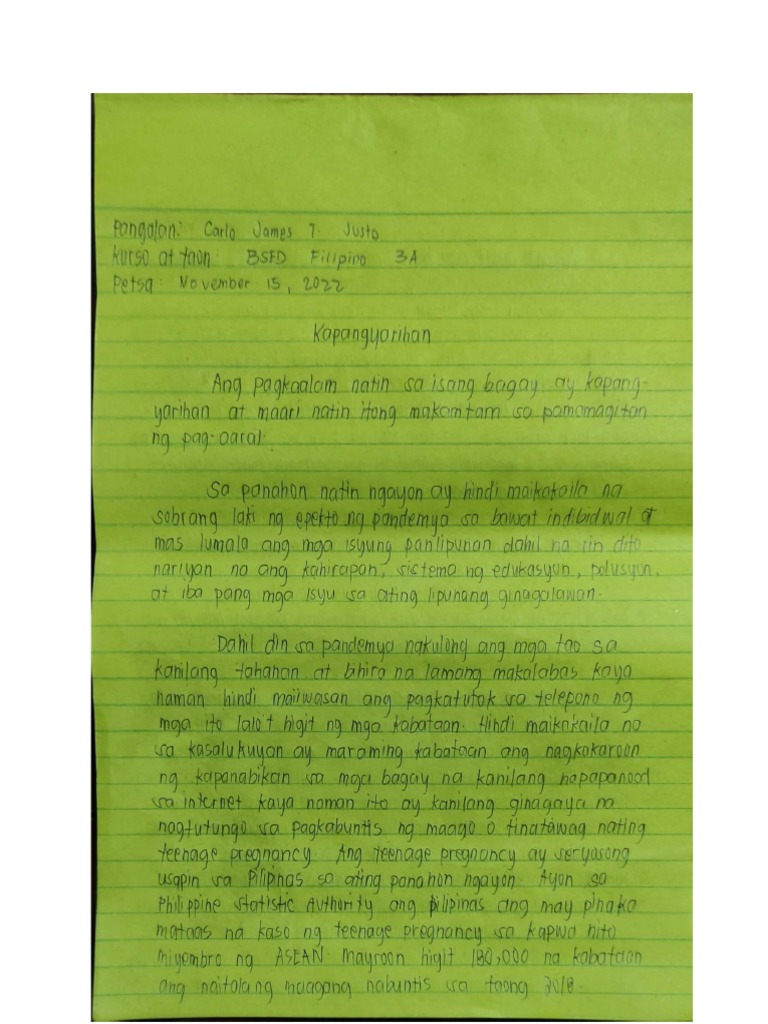 Pangalan: Carlo James T. Justo
Kurso at taon: BSED Filipino 3A
Petsa: November 15, 2022
Kapangyarihan
Ang pagkaalam natin sa isang bagay ay kapang-
yarihan at maari natin itong makamtam sa pamamagitan
ng pag-aaral.
Sa panahon natin ngayon ay hindi maikakaila na
sobrang laki ng epekto ng pandemya sa bawat indibidwal at
mas lumala ang mga isyung panlipunan dahil na rin dito
nariyan na ang kahirapan, sistema ng edukasyon, polusyun,
at iba pang mga isyu sa ating lipunang ginagalawan.
Dahil din sa pandemya nakulong ang mga tao sa
kanilang tahanan at bhira na lamang makalabas kaya
naman hindi maiiwasan ang pagkatutok sa telepono ng
mga ito lalo't higit ng mga kabataan. Hindi maikakaila na
sa kasalukuyan ay maraming kabataan ang nagkakaroon
ng kapanabikan sa mga bagay na kanilang napapanood
sa internet kaya naman ito ay kanilang ginagaya na
nagtutungo sa pagkabuntis ng maaga o tinatawag nating
teenage pregnancy. Ang teenage pregnancy ay seryosong
usapin sa Pilipinas sa ating panahon ngayon. Ayon sa
Philippine Statistic Authority ang Pilipinas ang may pinaka
mataas na kaso ng teenage pregnancy sa kapwa nito
miyembro ng ASEAN. Mayroon higit 180,000 na kabataan
ang naitalang maagang nabuntis sa taong 2018.